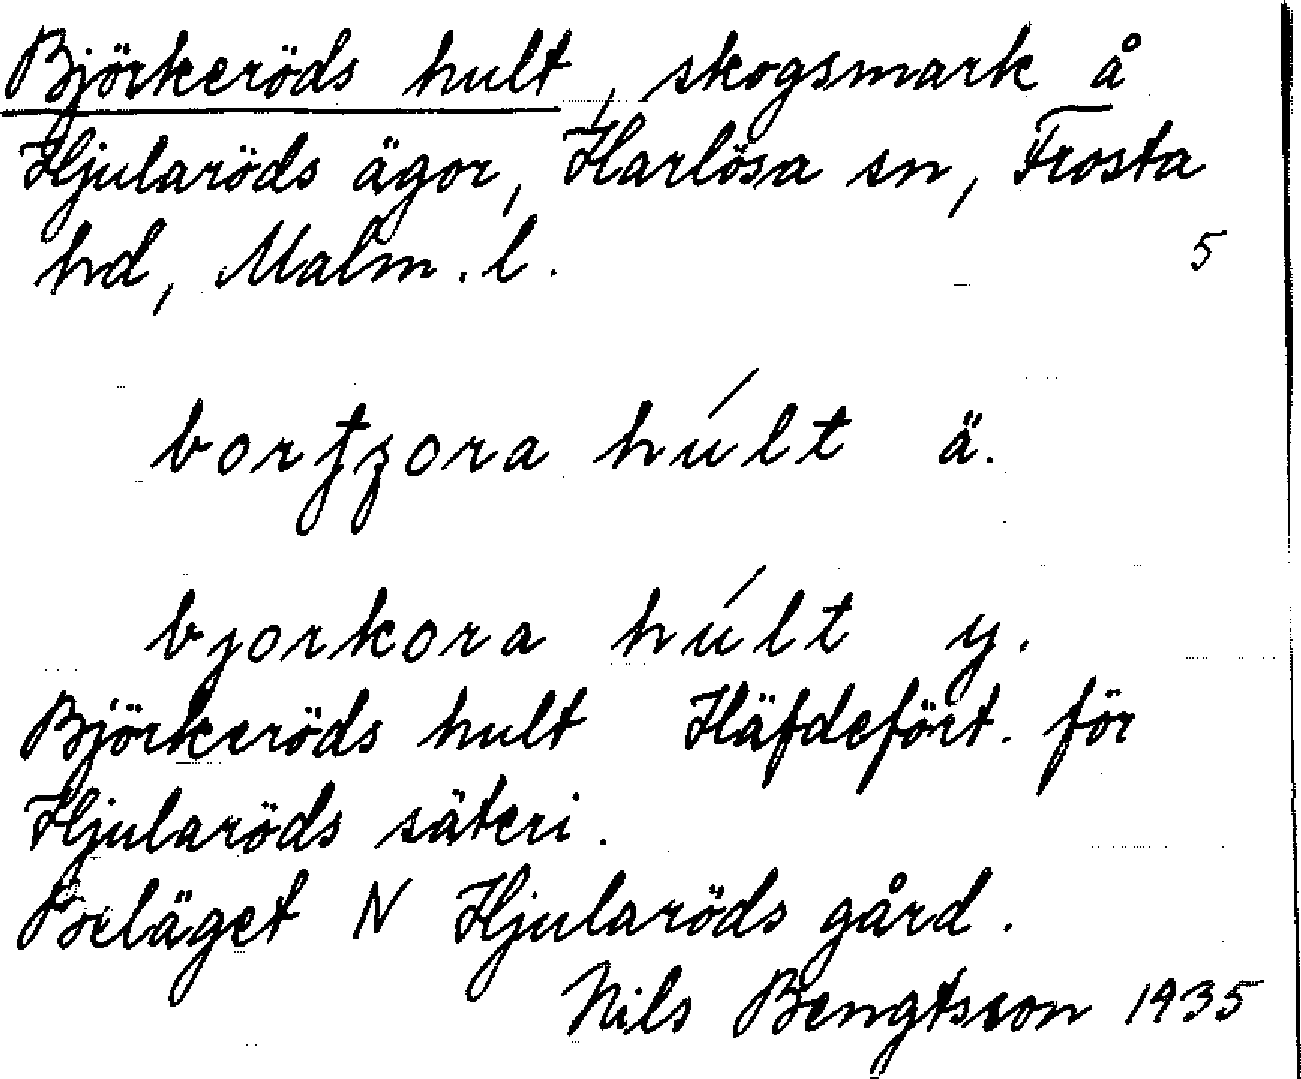 Björkeröds hult, skogsmark å
Hjularöds ägor, Harlösa sn, Frosta
hd, Malm. l. 5
húlt ä.
bjorkora húlt y.
Björkeröds hult Häfdefört. för
Hjularöds säteri.
Beläget N Hjularöds gård.
Nils Bengtsson 1935